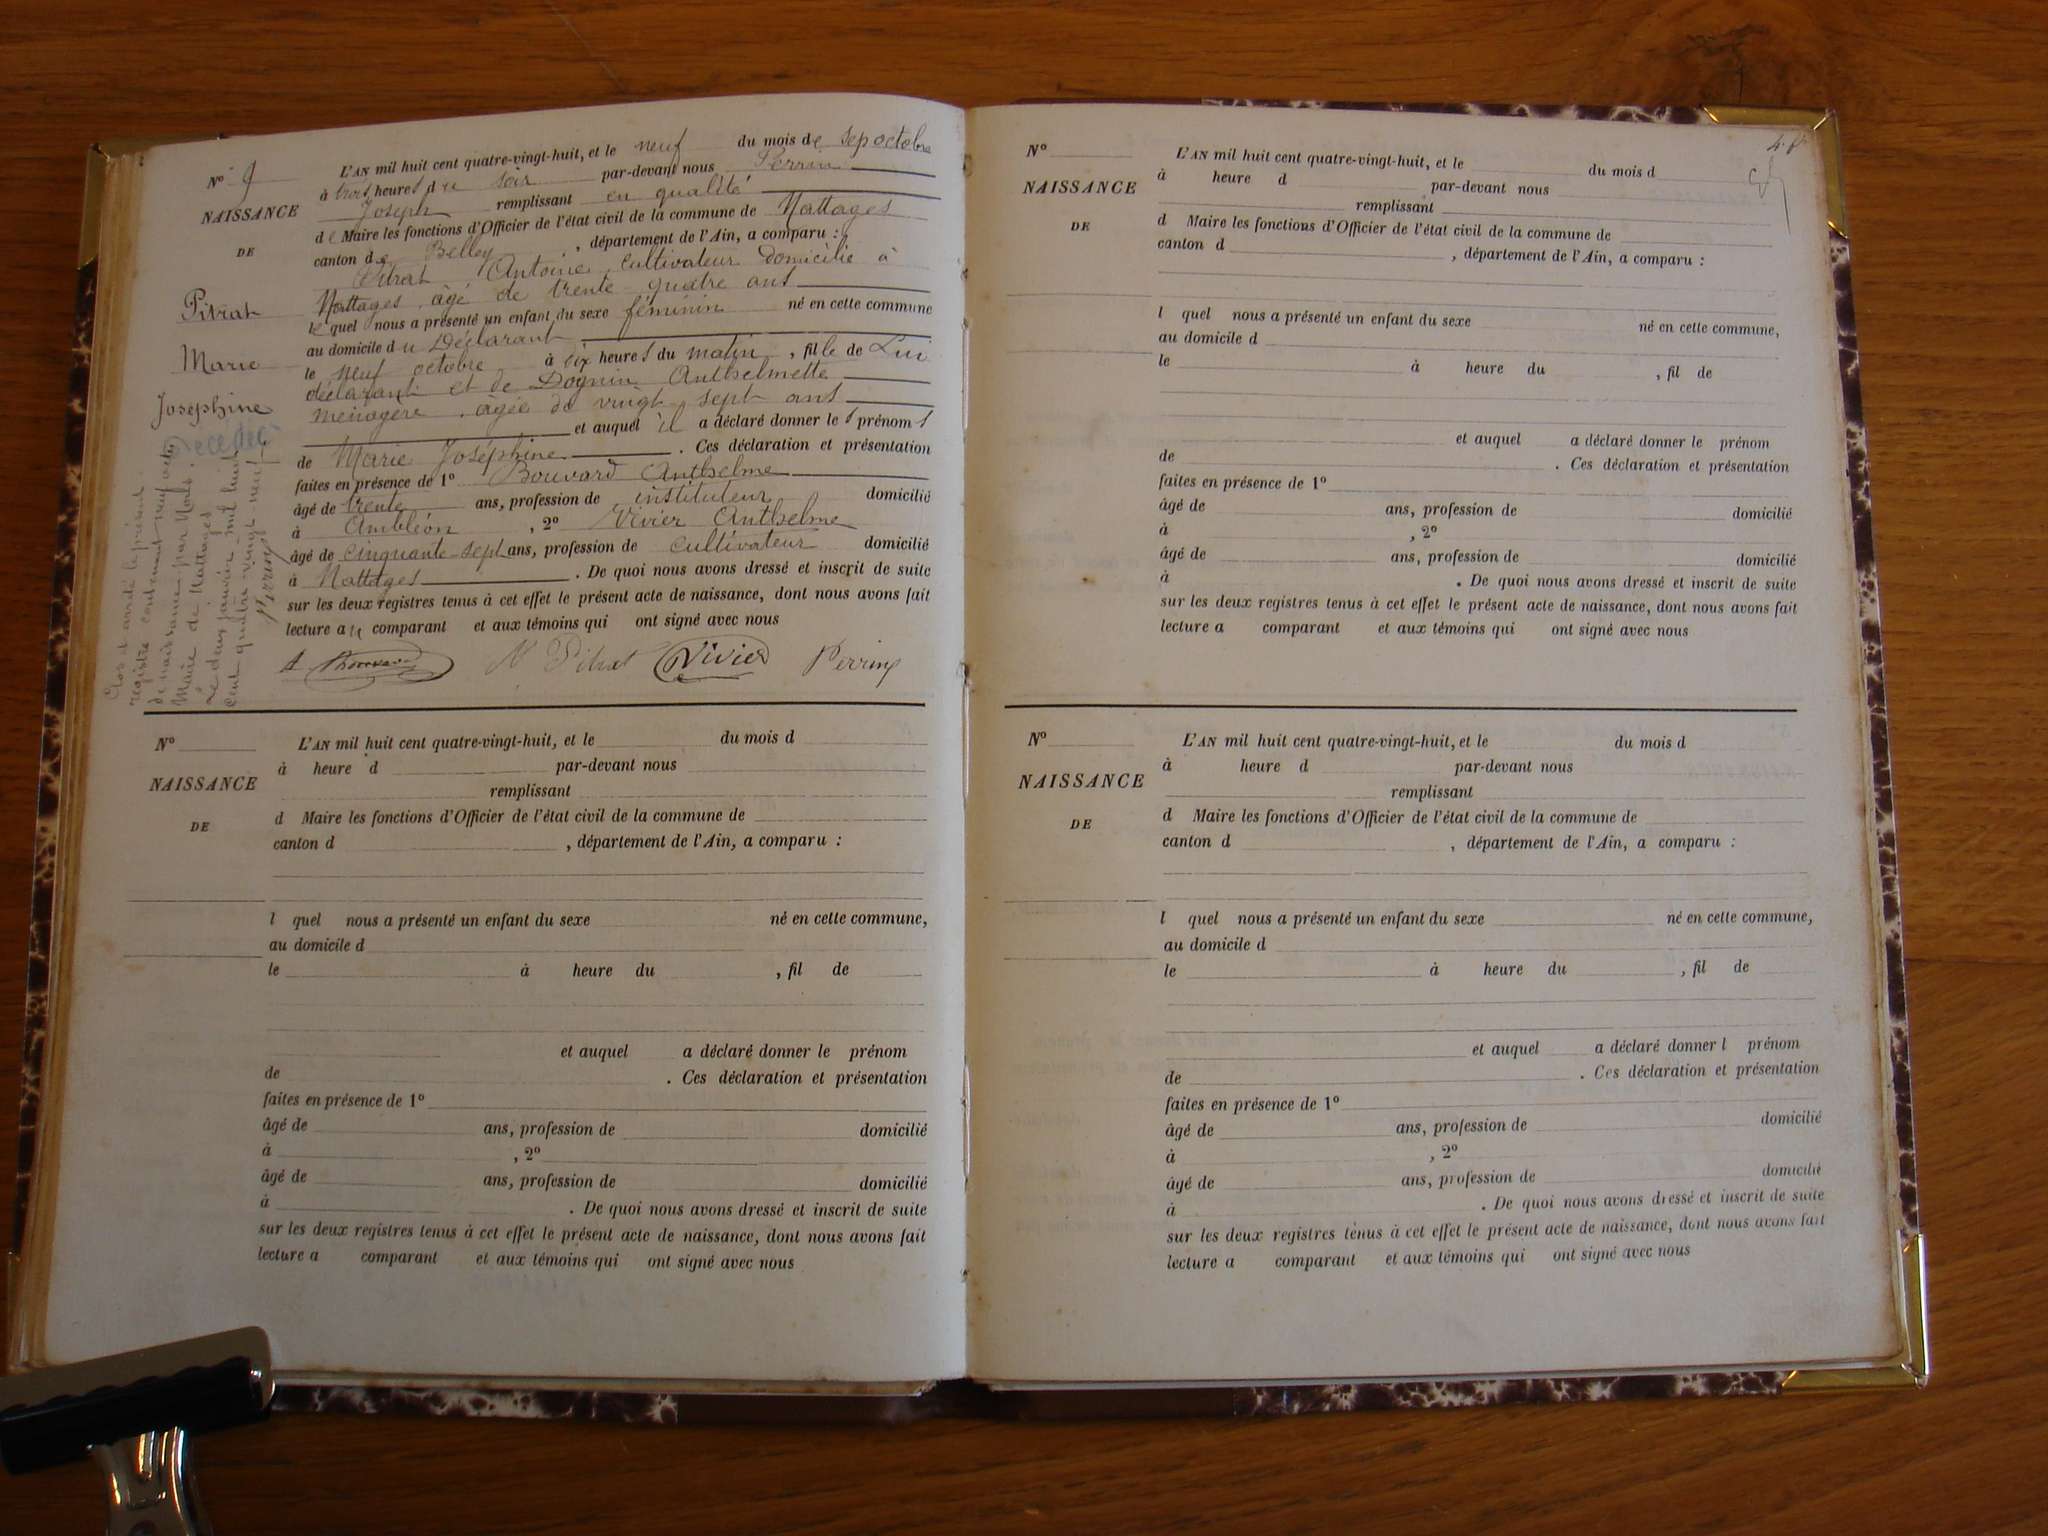 N° 9
NAISSANCE
DE
Pitrat
Marie
Joséphine
Décédée
Clos et arrêté le présent
registre contenant neuf actes
de naissance par Nous
Maire de Nattages
le deux janvier mil huit
cent quatre vingt neuf
Perrin
L'AN mil huit cent quatre-vingt-huit, et le neuf du mois de sep octobre
à trois heures du soir par-devant nous Perrin
Joseph remplissant en qualité
de Maire les fonctions d'Officier de l'état civil de la commune de Nattages
canton de Belley, département de l'Ain, a comparu :
Pitrat Antoine cultivateur domicilié à
Nattages âgé de trente quatre ans
lequel nous a présenté un enfant du sexe féminin né en cette commune
au domicile du Déclarant
le neuf octobre à six heures du matin, fille de Lui
déclarant et de Dognin Anthelmette
ménagère, âgée de vingt sept ans
et auquel il a déclaré donner les prénoms
de Marie Joséphine. Ces déclaration et présentation
faites en présence de 1° Bouvard Anthelme
âgé de trente ans, profession de instituteur domicilié
à Ambléon, 2° Vivier Anthelme
âgé de cinquante-sept ans, profession de cultivateur domicilié
à Nattages. De quoi nous avons dressé et inscrit de suite
sur les deux registres tenus à cet effet le présent acte de naissance, dont nous avons fait
lecture au comparant et aux témoins qui ont signé avec nous
A Bouvard Pitrat Vivier Perrin
N°
NAISSANCE
DE
L'AN mil huit cent quatre-vingt-huit, et le du mois d
à heure d par-devant nous
remplissant
d Maire les fonctions d'Officier de l'état civil de la commune de
canton d , département de l'Ain, a comparu :
l quel nous a présenté un enfant du sexe né en cette commune,
au domicile d
le à heure du , fil de
et auquel a déclaré donner le prénom
de . Ces déclaration et présentation
faites en présence de 1°
âgé de ans, profession de domicilié
à , 2°
âgé de ans, profession de domicilié
à . De quoi nous avons dressé et inscrit de suite
sur les deux registres tenus à cet effet le présent acte de naissance, dont nous avons fait
lecture a comparant et aux témoins qui ont signé avec nous
N°
NAISSANCE
DE
L'AN mil huit cent quatre-vingt-huit, et le du mois d
à heure d par-devant nous
remplissant
d Maire les fonctions d'Officier de l'état civil de la commune de
canton d , département de l'Ain, a comparu :
l quel nous a présenté un enfant du sexe né en cette commune,
au domicile d
le à heure du , fil de
et auquel a déclaré donner le prénom
de . Ces déclaration et présentation
faites en présence de 1°
âgé de ans, profession de domicilié
à , 2°
âgé de ans, profession de domicilié
à . De quoi nous avons dressé et inscrit de suite
sur les deux registres tenus à cet effet le présent acte de naissance, dont nous avons fait
lecture a comparant et aux témoins qui ont signé avec nous
N°
NAISSANCE
DE
L'AN mil huit cent quatre-vingt-huit, et le du mois d
à heure d par-devant nous
remplissant
d Maire les fonctions d'Officier de l'état civil de la commune de
canton d , département de l'Ain, a comparu :
l quel nous a présenté un enfant du sexe né en cette commune,
au domicile d
le à heure du , fil de
et auquel a déclaré donner l prénom
de . Ces déclaration et présentation
faites en présence de 1°
âgé de ans, profession de domicilié
à , 2°
âgé de ans, profession de domicilié
à . De quoi nous avons dressé et inscrit de suite
sur les deux registres tenus à cet effet le présent acte de naissance, dont nous avons fait
lecture a comparant et aux témoins qui ont signé avec nous